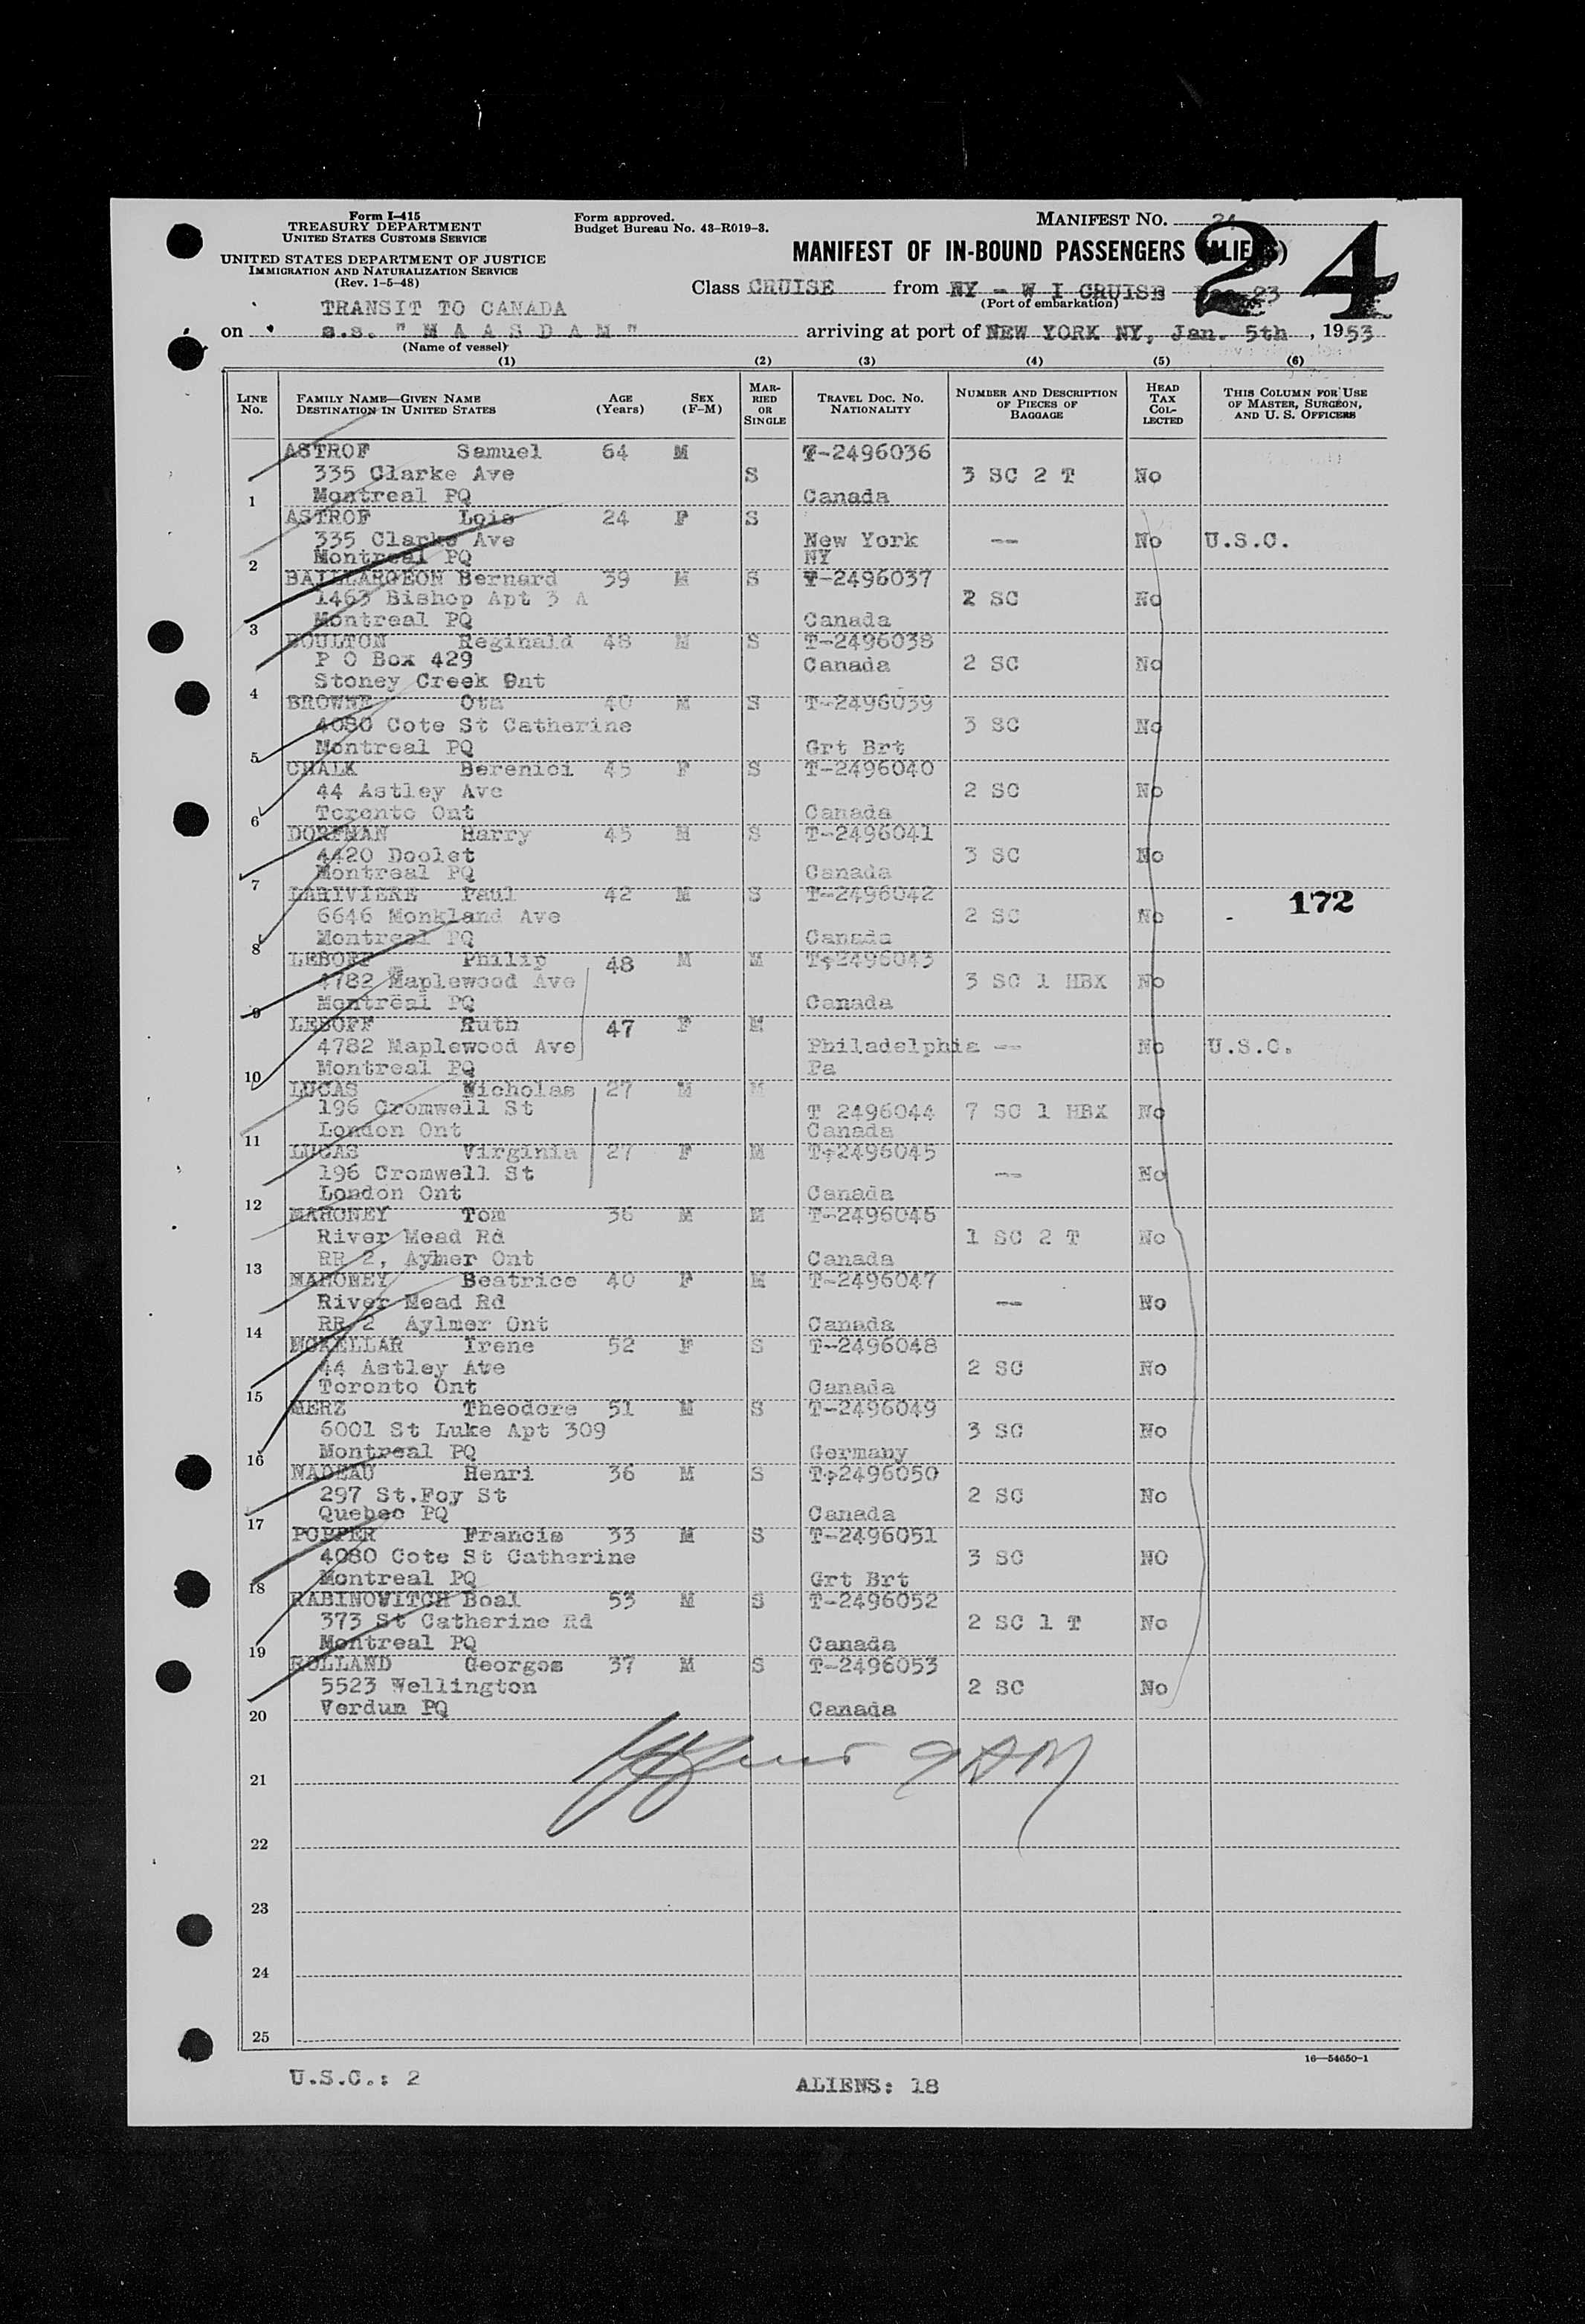 Form I-415
TREASURY DEPARTMENT
UNITED STATES CUSTOMS SERVICE
UNITED STATES DEPARTMENT OF JUSTICE
IMMIGRATION AND NATURALIZATION SERVICE
(Rev. 1-5-48)
Form approved.
Budget Bureau No. 43-R019-3.
MANIFEST NO. 24
24
MANIFEST OF IN-BOUND PASSENGERS (ALIENS)
Class CRUISE from NY - W I CRUISE 23
(Port of embarkation)
TRANSIT TO CANADA
on s.s. "M A A S D A M" arriving at port of NEW YORK NY, Jan. 5th, 1953
(Name of vessel)
(1) (2) (3) (4) (5) (6)
LINE No. FAMILY NAME—GIVEN NAME DESTINATION IN UNITED STATES AGE (Years) SEX (F-M) MARRIED OR SINGLE TRAVEL DOC. NO. NATIONALITY NUMBER AND DESCRIPTION OF PIECES OF BAGGAGE HEAD TAX COLLECTED THIS COLUMN FOR USE OF MASTER, SURGEON, AND U. S. OFFICERS
ASTROF Samuel 64 M T-2496036
335 Clarke Ave S 3 SC 2 T No
1 Montreal PQ Canada
ASTROF Lois 24 F S
335 Clarke Ave New York -- No U.S.C.
2 Montreal PQ NY
BAILLARGEON Bernard 39 M S T-2496037
1463 Bishop Apt 3 A 2 SC No
3 Montreal PQ Canada
BOULTON Reginald 48 M S T-2496038
P O Box 429 Canada 2 SC No
4 Stoney Creek Ont
BROWNE 40 M S T-2496039
4080 Cote St Catherine 3 SC No
5 Montreal PQ Grt Brt
CHALK Berenici 45 F S T-2496040
44 Astley Ave 2 SC No
6 Toronto Ont Canada
DORFMAN Harry 45 M S T-2496041
4420 Doolet 3 SC No
7 Montreal PQ Canada
LARIVIERE Paul 42 M S T-2496042
6646 Monkland Ave 2 SC No - 172
8 Montreal PQ Canada
LEBOFF Philip 48 M M T-2496043
4782 Maplewood Ave 3 SC 1 HBX No
9 Montreal PQ Canada
LEBOFF Ruth 47 F M
4782 Maplewood Ave Philadelphia -- No U.S.C.
10 Montreal PQ Pa
LUCAS Nicholas 27 M M
196 Cromwell St T 2496044 7 SC 1 HBX No
11 London Ont Canada
LUCAS Virginia 27 F M T-2496045
196 Cromwell St -- No
12 London Ont Canada
MAHONEY Tom 36 M M T-2496046
River Mead Rd 1 SC 2 T No
13 RR 2, Aylmer Ont Canada
MAHONEY Beatrice 40 F M T-2496047
River Mead Rd -- No
14 RR 2 Aylmer Ont Canada
MCKELLAR Irene 52 F S T-2496048
44 Astley Ave 2 SC No
15 Toronto Ont Canada
MERZ Theodore 51 M S T-2496049
6001 St Luke Apt 309 3 SC No
16 Montreal PQ Germany
NADEAU Henri 36 M S T-2496050
297 St.Foy St 2 SC No
17 Quebec PQ Canada
POPPER Francis 33 M S T-2496051
4080 Cote St Catherine 3 SC NO
18 Montreal PQ Grt Brt
RABINOVITCH Boal 53 M S T-2496052
373 St Catherine Rd 2 SC 1 T No
19 Montreal PQ Canada
ROLLAND Georges 37 M S T-2496053
5523 Wellington 2 SC No
20 Verdun PQ Canada
21
22
23
24
25
16—54650-1
U.S.C.: 2 ALIENS: 18